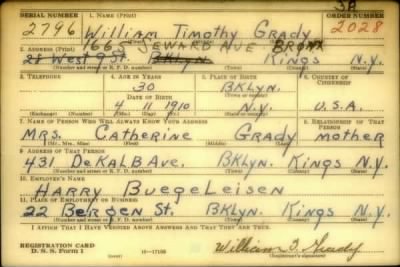 3A
SERIAL NUMBER 1. NAME (Print) ORDER NUMBER
2796 William Timothy Grady 2028
1665 SEWARD AVE BRONX
2. ADDRESS (Print)
28 West 9 St. BKlyn. Kings N.Y.
(Number and street or R. F. D. number) (Town) (County) (State)
3. TELEPHONE 4. AGE IN YEARS 5. PLACE OF BIRTH 6. COUNTRY OF CITIZENSHIP
30 BKLYN.
DATE OF BIRTH
4 11 1910 N.Y. U.S.A.
(Exchange) (Number) (Mo.) (Day) (Yr.) (State or country)
7. NAME OF PERSON WHO WILL ALWAYS KNOW YOUR ADDRESS 8. RELATIONSHIP OF THAT PERSON
MRS. Catherine Grady mother
(Mr., Mrs., Miss) (First) (Middle) (Last)
9. ADDRESS OF THAT PERSON
431 DeKALB Ave. BKLyn. Kings N.Y.
(Number and street or R. F. D. number) (Town) (County) (State)
10. EMPLOYER'S NAME
HARRY BuegeLeisen
11. PLACE OF EMPLOYMENT OR BUSINESS
22 Bergen St. BKLyn. Kings N.Y.
(Number and street or R. F. D. number) (Town) (County) (State)
I AFFIRM THAT I HAVE VERIFIED ABOVE ANSWERS AND THAT THEY ARE TRUE.
REGISTRATION CARD
D. S. S. Form 1 (over) 16—17105 William T. Grady
(Registrant's signature)